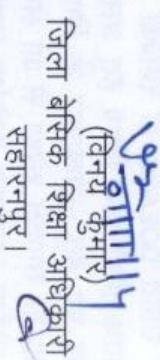 (विनय कुमार)
जिला बेसिक शिक्षा अधिकारी
सहारनपुर।